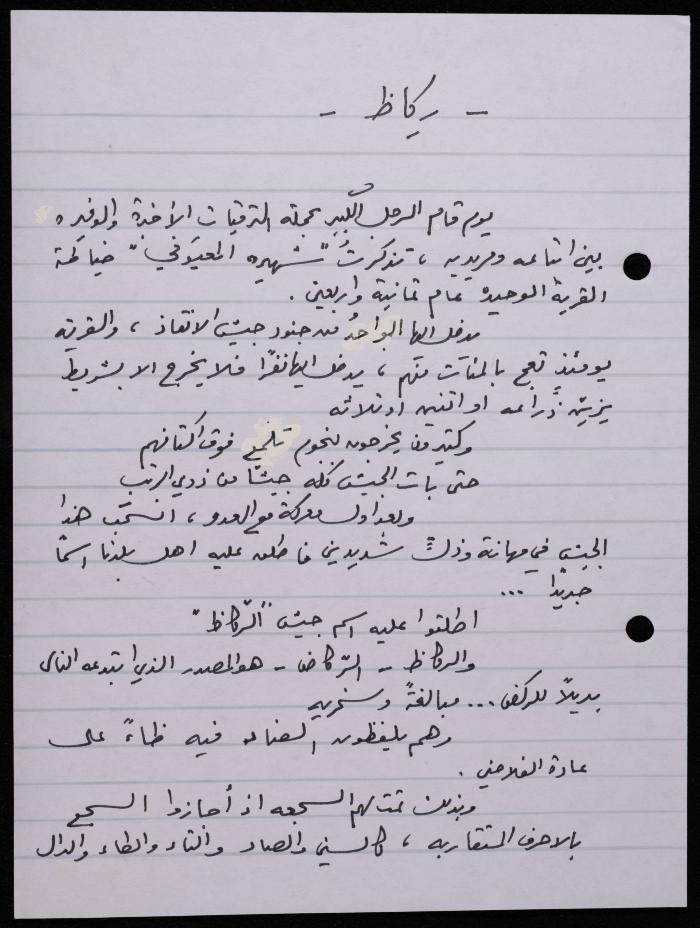 - ركاظ -
يوم قام الرجل الكبير بحملة الترقيات الأخيرة والوفيره
بين اتباعه ومريديه ، تذكرتُ "شهيره المعيوفي" خياطة
القرية الوحيده عام ثمانية واربعين .
يدخل اليها الواحدُ من جنود جيش الانقاذ ، والقريه
يومئذٍ تعج بالمئات منهم ، يدخل اليها نفرًا فلا يخرج الا بشريط
يزين ذراعه او اثنين او ثلاثه
وكثيرون يخرجون بنجوم تلمع فوق اكتافهم
حتى بات الجيش كله جيشًا من ذوي الرتب
وبعد اول معركة مع العدو ، انسحب هذا
الجيش في مهانة وذلٍّ شديدين فاطلق عليه اهل بلدنا اسمًا
جديدًا ...
اطلقوا عليه اسم جيش "الرّكاظ"
والركاظ - الرّكاض - هو المصدر الذي ابتدعه الناس
بديلاً للركض ... مبالغةً وسخريه
وهم يلفظون الضاد فيه ظاءً على
عادة الفلاحين .
وبذلك تمت لهم السجعه اذ أجازوا السجع
بالاحرف المتقاربه ، كالسين والصاد والتاء والطاء والدال